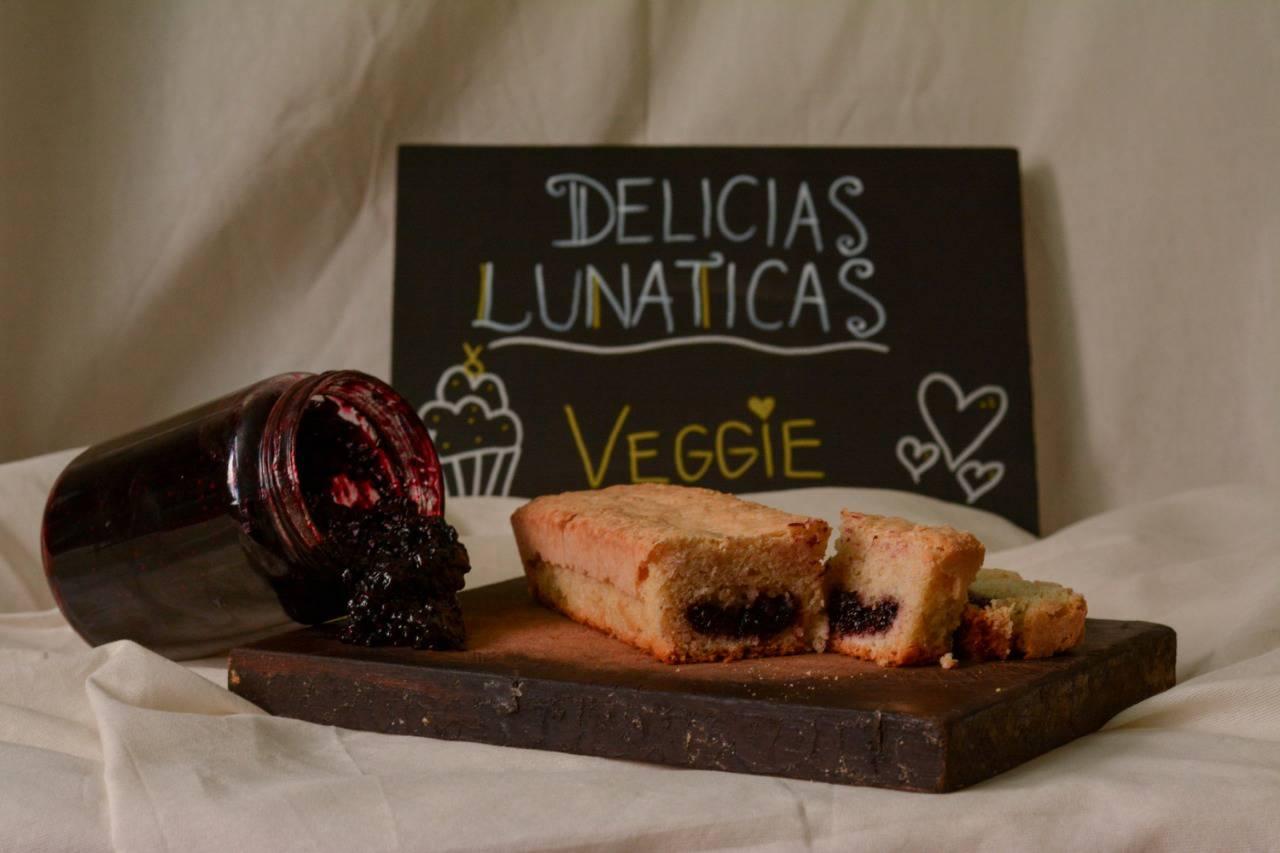 DELICIAS
LUNATICAS
VEGGIE